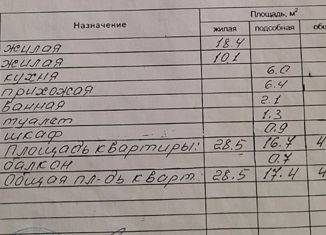 Площадь, м²
Назначение жилая подсобная об
жилая 18.4
жилая 10.1
кухня 6.0
прихожая 6.4
ванная 2.1
туалет 1.3
шкаф 0.9
Площадь квартиры: 28.5 16.7 4
балкон 0.7
Общая пл-дь кварт.: 28.5 17.4 4